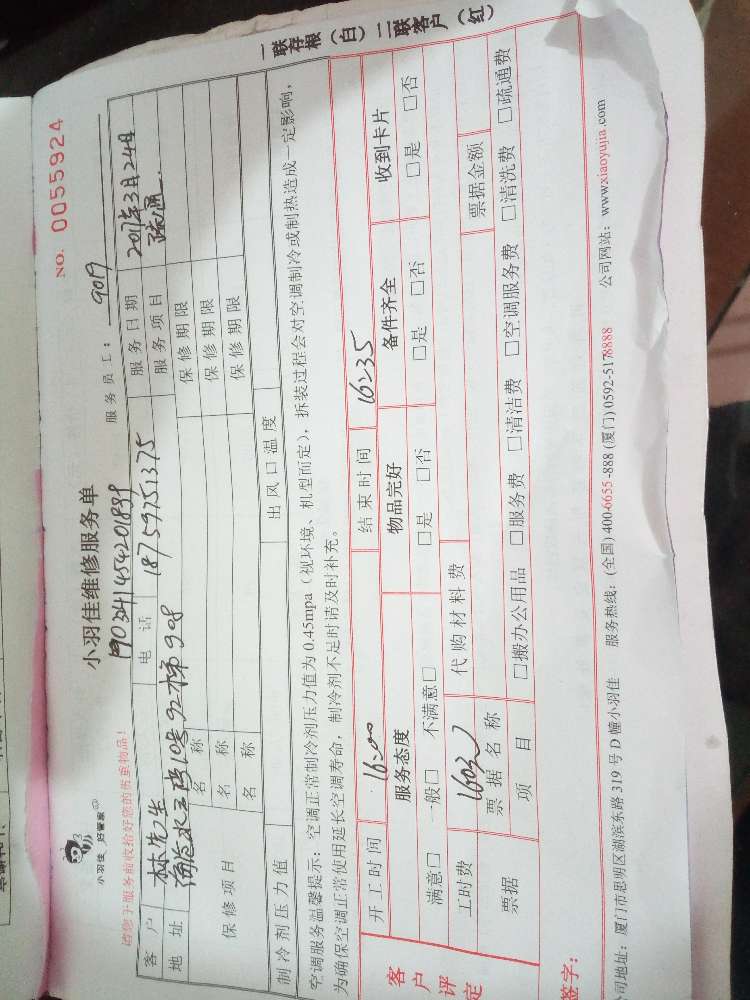 小羽佳 好管家
小羽佳维修服务单
NO. 0055924
请您于服务前收拾好您的贵重物品!
服务员工: 9019
客户 林先生 电话 18759751375 服务日期
地址 服务项目 疏通
保修项目 名称 保修期限
名称 保修期限
名称 保修期限
制冷剂压力值 出风口温度
空调服务温馨提示:空调正常制冷剂压力值为0.45mpa(视环境、机型而定),拆装过程会对空调制冷或制热造成一定影响,
为确保空调正常使用延长空调寿命,制冷剂不足时请及时补充。
一联存根(白)二联客户(红)
客户评定
开工时间 16:00 结束时间 16:35
服务态度 物品完好 备件齐全 收到卡片
满意□ 一般□ 不满意□ □是 □否 □是 □否 □是 □否
工时费 代购材料费
票据 票据名称 票据金额
项目 □搬办公用品 □服务费 □清洁费 □空调服务费 □清洗费 □疏通费
签字:
司地址:厦门市思明区湖滨东路319号D幢小羽佳 服务热线:(全国)400-6655-888 (厦门)0592-5178888 公司网站:www.xiaoyujia.com